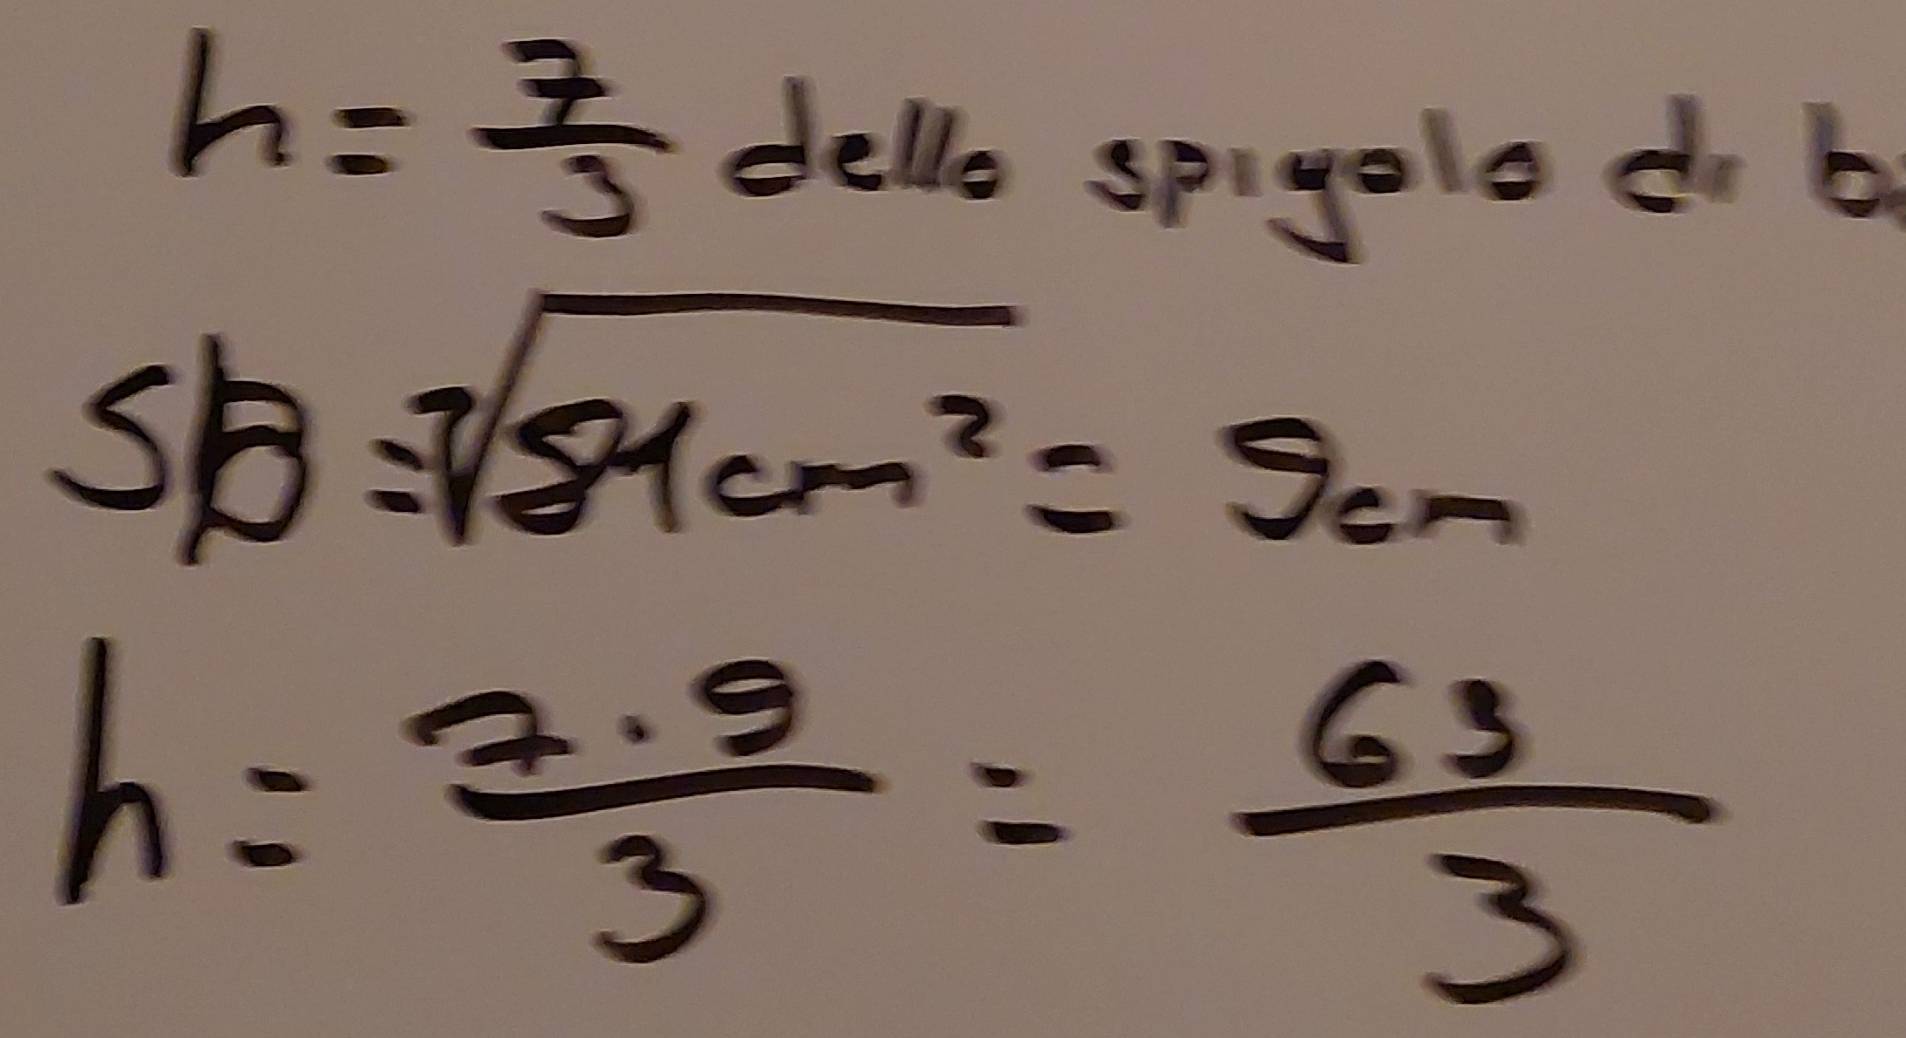 h = 7/3 dello spigolo di
SB = ²√81cm² = 9cm
h = 7·9/3 = 63/3